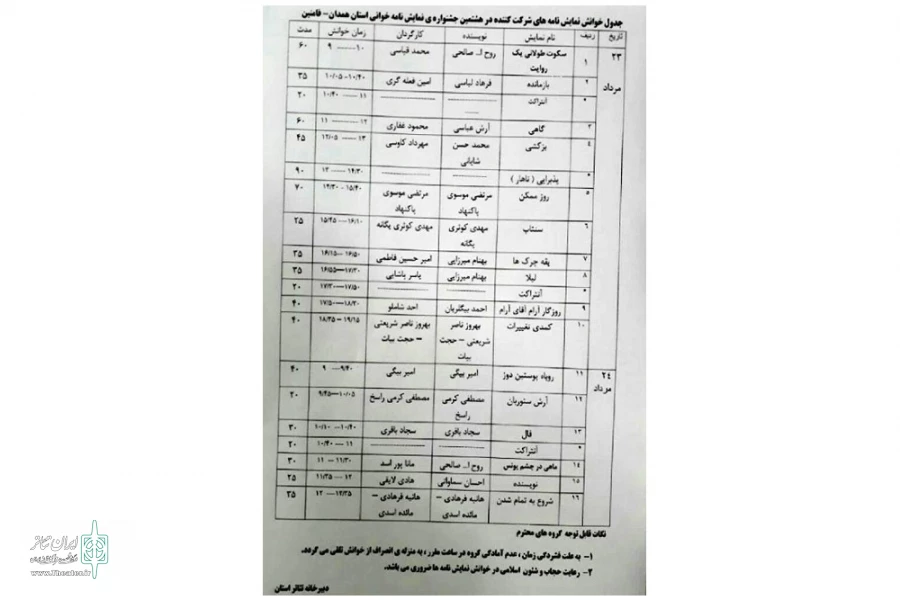 جدول خوانش نمایش نامه های شرکت کننده در هشتمین جشنواره ی نمایش نامه خوانی استان همدان- فامنین
تاریخ ردیف نام نمایش نویسنده کارگردان زمان خوانش مدت
۲۳ مرداد ۱ سکوت طولانی یک روایت روح ا.. صالحی محمد قیاسی ۱۰ ---- ۹ ۶۰
۲ بازمانده فرهاد لباسی امین فعله گری ۱۰/۴۰-۱۰/۰۵ ۳۵
* آنتراکت ۱۱ ---- ۱۰/۴۰ ۲۰
۳ گاهی آرش عباسی محمود غفاری ۱۲ ---- ۱۱ ۶۰
۴ بزکشی محمد حسن شایانی مهرداد کاوسی ۱۳ ---- ۱۲/۰۵ ۴۵
* پذیرایی ( ناهار ) ۱۴/۳۰ ---- ۱۳ ۹۰
۵ روز ممکن مرتضی موسوی پاکنهاد مرتضی موسوی پاکنهاد ۱۵/۴۰ - ۱۴/۳۰ ۷۰
۶ سنتاپ مهدی کوثری یگانه مهدی کوثری یگانه ۱۶/۱۰ --- ۱۵/۴۵ ۲۵
۷ یقه چرک ها بهنام میرزایی امیر حسین فاطمی ۱۶/۵۰---۱۶/۱۵ ۳۵
۸ لیلا بهنام میرزایی یاسر پاشایی ۱۷/۳۰---۱۶/۵۵ ۳۵
* آنتراکت ۱۷/۵۰---۱۷/۳۰ ۲۰
۹ روزگار آرام آقای آرام احمد بیگلریان احد شاملو ۱۸/۳۰---۱۷/۵۰ ۴۰
۱۰ کمدی تغییرات بهروز ناصر شریعتی – حجت بیات بهروز ناصر شریعتی – حجت بیات ۱۹/۱۵ --- ۱۸/۳۵ ۴۰
۲۴ مرداد ۱۱ روباه پوستین دوز امیر بیگی امیر بیگی ۹/۴۰--- ۹ ۴۰
۱۲ آرش ستوربان مصطفی کرمی راسخ مصطفی کرمی راسخ ۱۰/۰۵---۹/۴۵ ۲۰
۱۳ فال سجاد باقری سجاد باقری ۱۰/۴۰---۱۰/۱۰ ۳۰
* آنتراکت ۱۱ --- ۱۰/۴۰ ۲۰
۱۴ ماهی در چشم یونس روح ا.. صالحی مانا پور اسد ۱۱/۳۰ --- ۱۱ ۳۰
۱۵ نویسنده احسان سماواتی هادی لایقی ۱۲ --- ۱۱/۳۵ ۲۵
۱۶ شروع به تمام شدن هانیه فرهادی – مائده اسدی هانیه فرهادی – مائده اسدی ۱۲/۳۵ --- ۱۲ ۳۵
نکات قابل توجه گروه های محترم
۱- به علت فشردگی زمان ، عدم آمادگی گروه در ساعت مقرر ، به منزله ی انصراف از خوانش تلقی می گردد.
۲- رعایت حجاب و شئون اسلامی در خوانش نمایش نامه ها ضروری می باشد.
دبیرخانه تئاتر استان
ایران تئاتر
www.Theater.ir